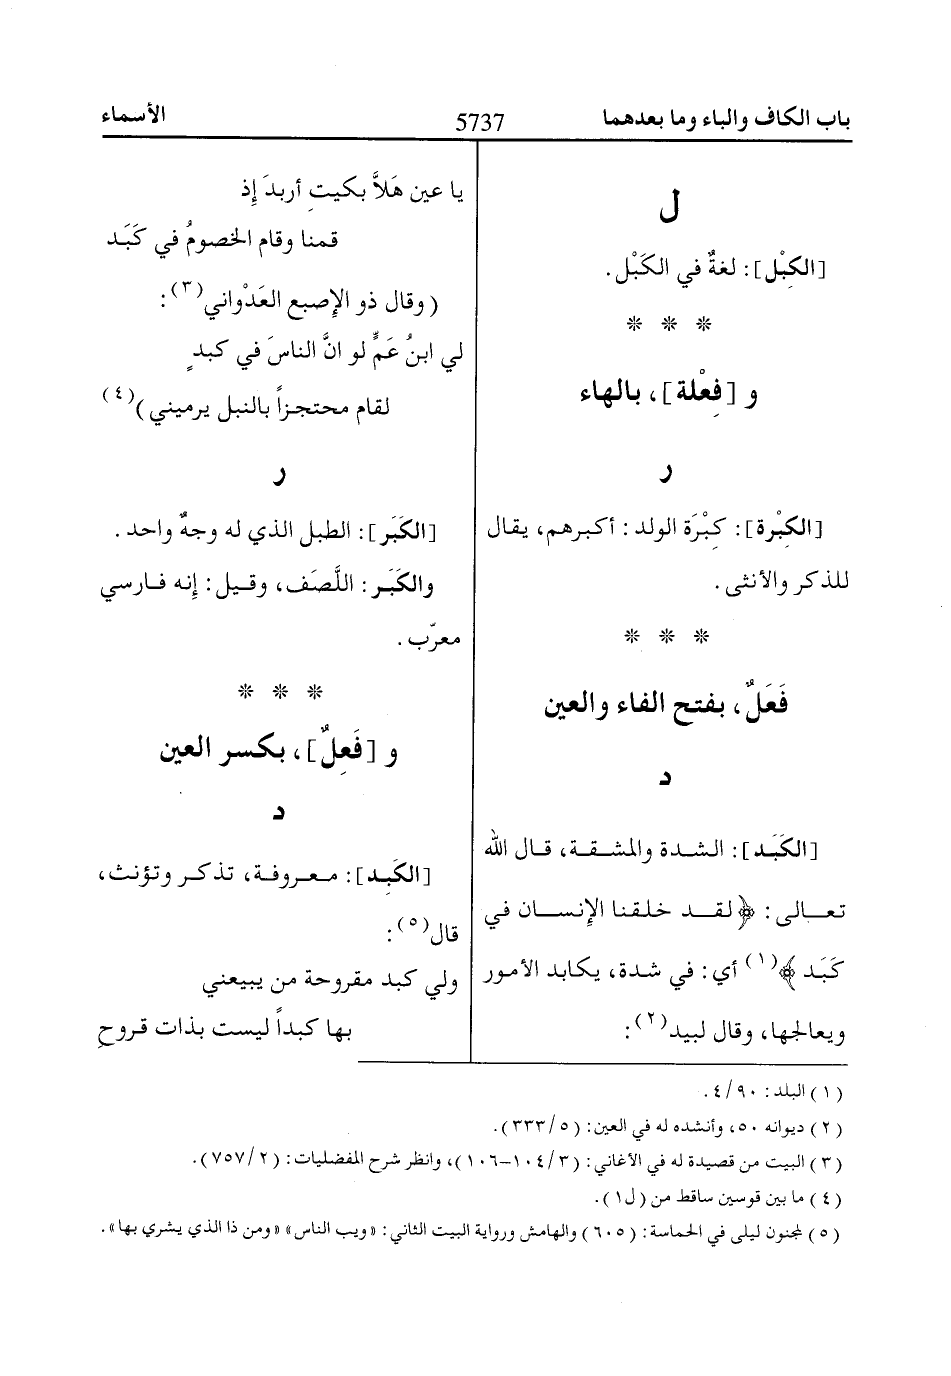 باب الكاف والباء وما بعدهما 5737 الأسماء
ل
[الكِبْل]: لغةٌ في الكَبْل.
* * *
و [فِعْلة]، بالهاء
ر
[الكِبْرة]: كِبْرَة الولد: أكبرهم، يقال
للذكر والأنثى.
* * *
فَعَلٌ، بفتح الفاء والعين
د
[الكَبَد]: الشدة والمشقة، قال الله
تعالى: ﴿لقد خلقنا الإنسان في
كَبَد﴾(١) أي: في شدة، يكابد الأمور
ويعالجها، وقال لبيد(٢):
يا عين هَلاَّ بكيتِ أربدَ إِذ
قمنا وقام الخصومُ في كَبَد
(وقال ذو الإِصبع العَدْواني(٣):
لي ابنُ عَمٍّ لو انَّ الناسَ في كبدٍ
لقام محتجزاً بالنبل يرميني)(٤)
ر
[الكَبَر]: الطبل الذي له وجهٌ واحد.
والكَبَر: اللَّصَف، وقيل: إِنه فارسي
معرّب.
* * *
و [فَعِلٌ]، بكسر العين
د
[الكَبِد]: معروفة، تذكر وتؤنث،
قال(٥):
ولي كبد مقروحة من يبيعني
بها كبداً ليست بذات قروحِ
(١) البلد: ٩٠/٤.
(٢) ديوانه ٥٠، وأنشده له في العين: (٥/٣٣٣).
(٣) البيت من قصيدة له في الأغاني: (٣/١٠٤-١٠٦)، وانظر شرح المفضليات: (٢/٧٥٧).
(٤) ما بين قوسين ساقط من (ل١).
(٥) لمجنون ليلى في الحماسة: (٦٠٥) والهامش ورواية البيت الثاني: «ويب الناس» «ومن ذا الذي يشري بها».